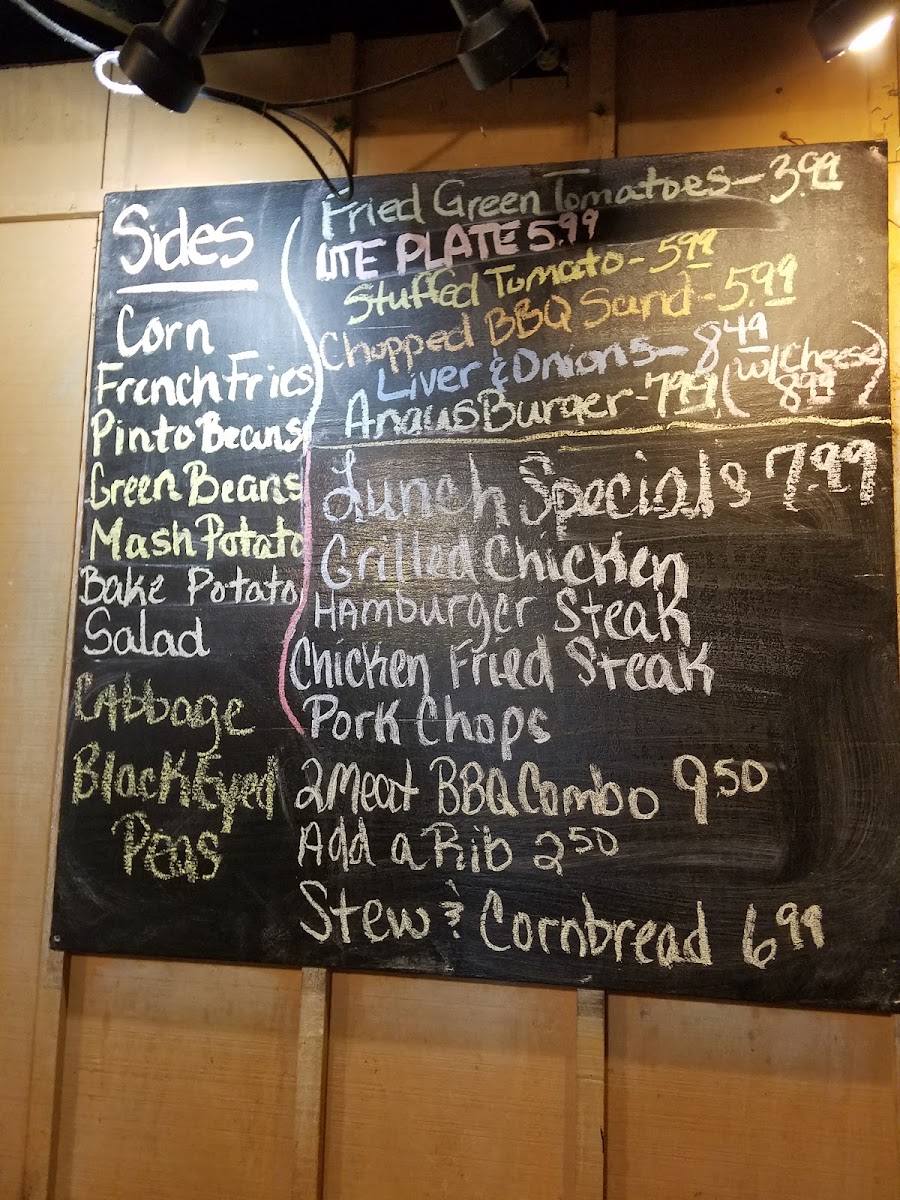 Sides
Corn
French Fries
Pinto Beans
Green Beans
Mash Potato
Bake Potato
Salad
Cabbage
Black Eyed
Peas
Fried Green Tomatoes - 3.99
LITE PLATE 5.99
Stuffed Tomato - 5.99
Chopped BBQ Sand - 5.99
Liver & Onions - 8.49
Angus Burger - 7.99 (w/Cheese 8.99)
Lunch Specials 7.99
Grilled Chicken
Hamburger Steak
Chicken Fried Steak
Pork Chops
2 Meat BBQ Combo 9.50
Add a Rib 2.50
Stew & Cornbread 6.99